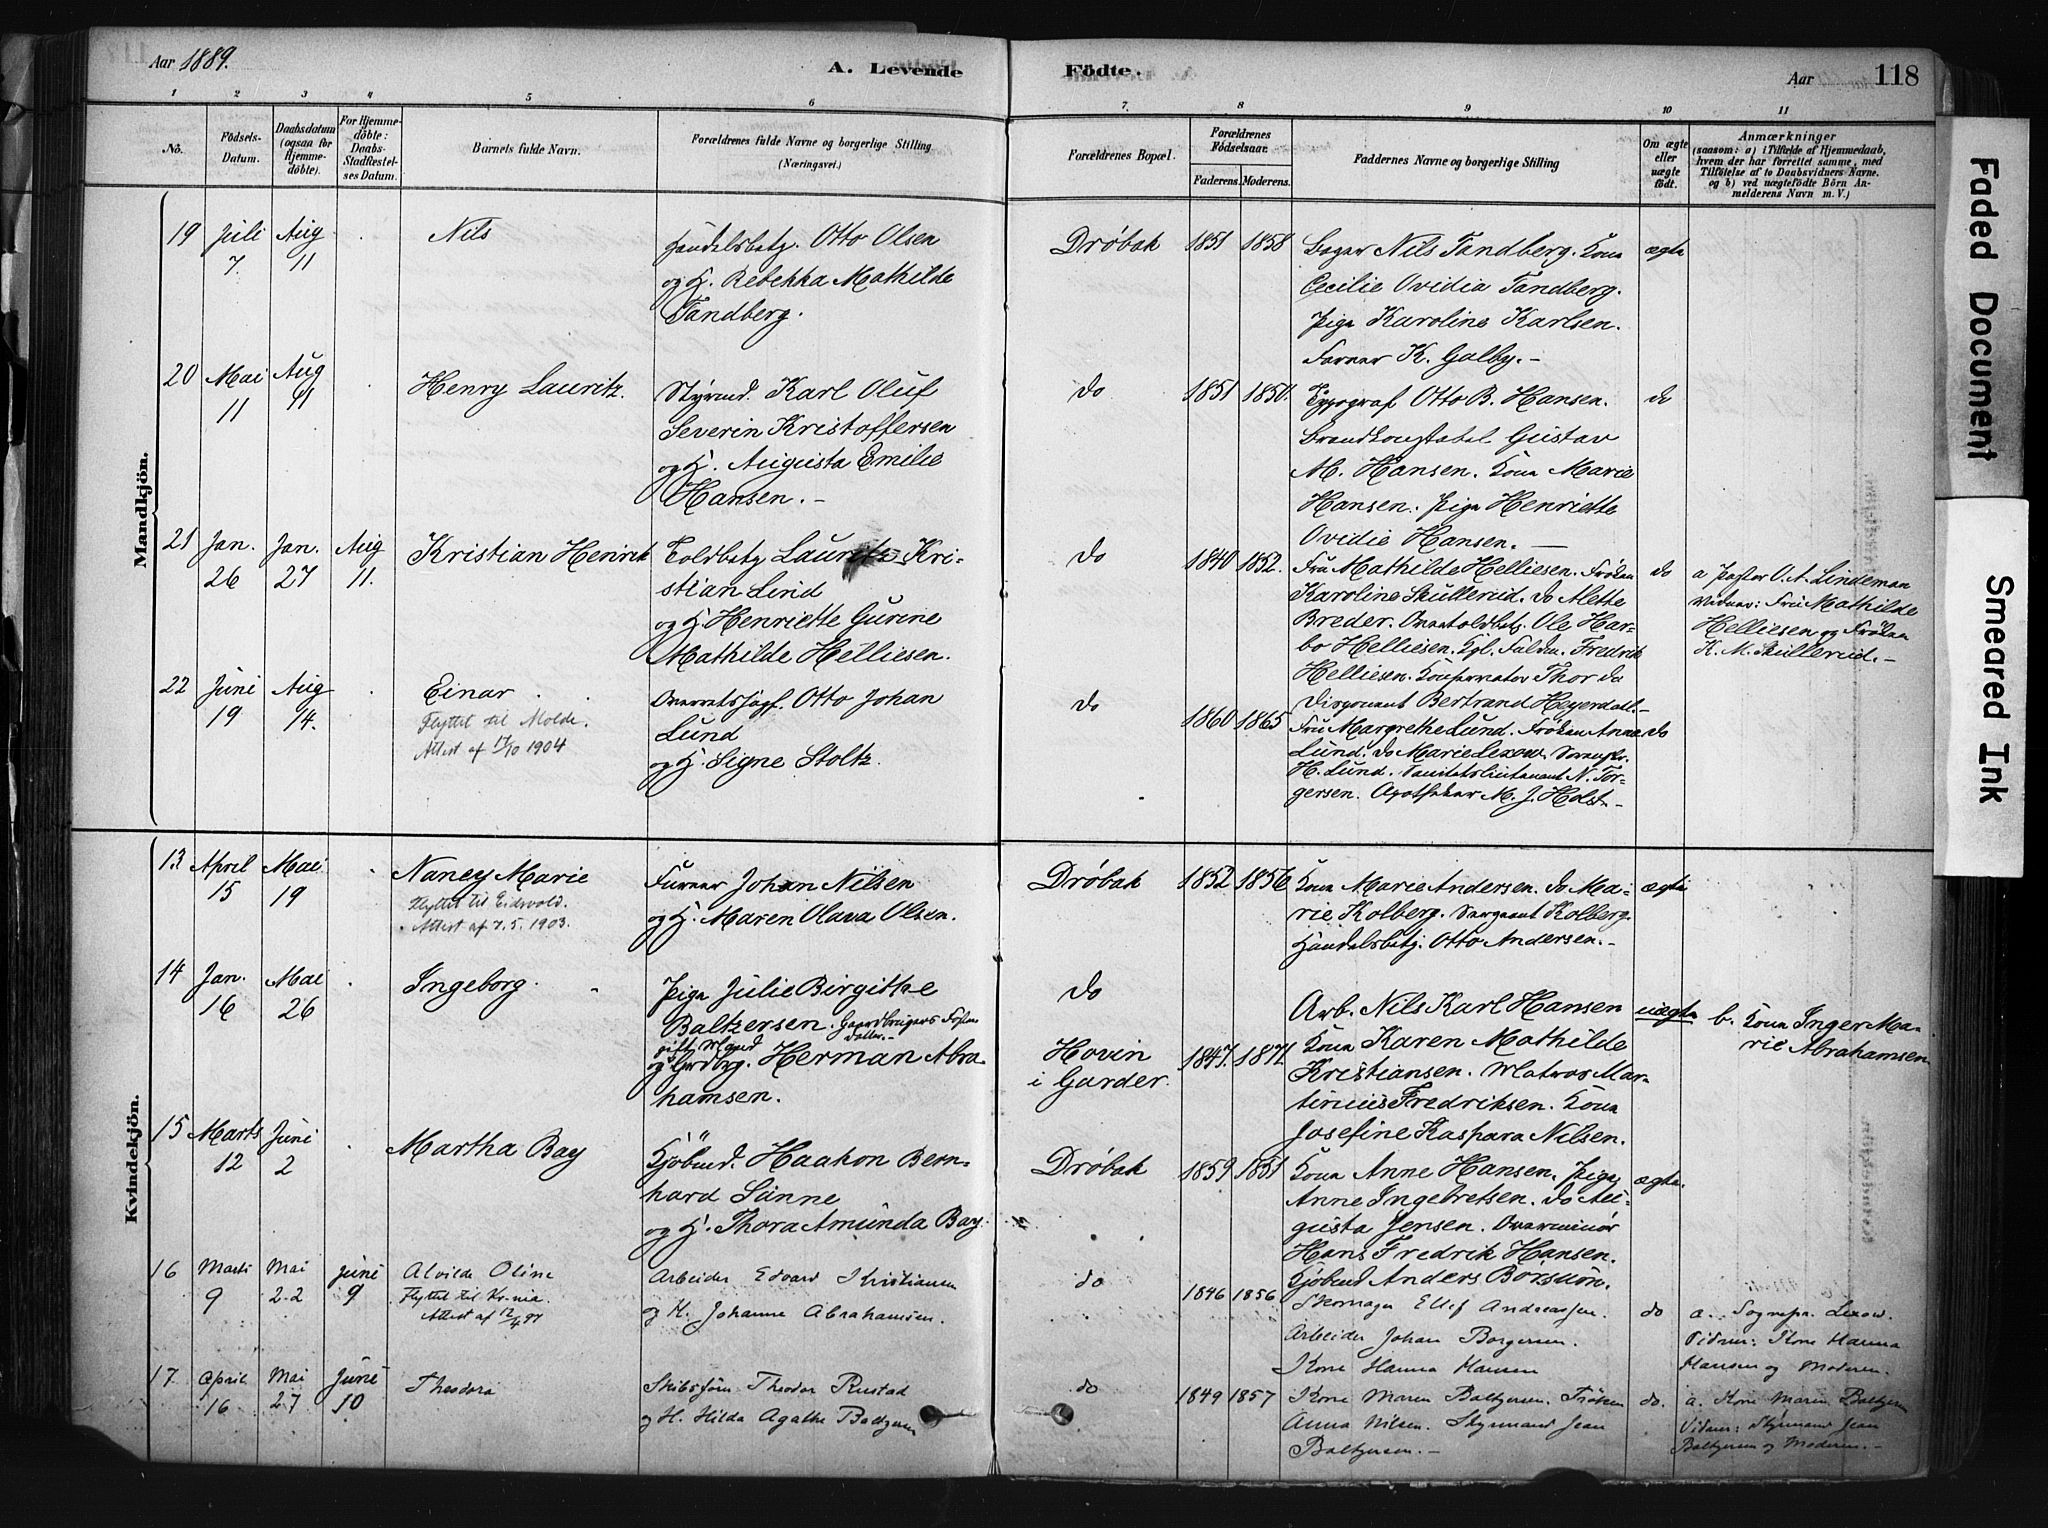 Aar 1889.
A. Levende
Födte.
Aar
118
1 2 3 4 5 6 7. 8 9 10 11
No.
Födsels-
Datum.
Daabsdatum
(ogsaa for
Hjemme-
döbte).
For Hjemme-
döbte:
Daabs-
Stadfæstel-
ses Datum.
Barnets fulde Navn.
Forældrenes fulde Navne og borgerlige Stilling
(Næringsvei.)
Forældrenes Bopæl.
Forældrenes
Födselsaar.
Faderens.
Moderens.
Faddernes Navne og borgerlige Stilling
Om ægte
eller
uægte
födt.
Anmærkninger
(saasom: a) i Tilfælde af Hjemmedaab,
hvem der har forrettet samme, med
Tilföielse af to Daabsvidners Navne.
og b) ved uægtefödte Börn An-
melderens Navn m. V.)
Mandkjön.
19
Juli
7.
Aug
11
Nils
Handelsbetj. Otto Olsen
og H. Rebekka Mathilde
Tandberg.
Drøbak
1851
1858
Bager Nils Tandberg. Kona
Cecilie Ovidia Tandberg.
Pige Karoline Karlsen.
Farver K. Galby.-
ægte
20
Mai
11
Aug
11
Henry Lauritz.
Styrmd. Karl Oluf
Severin Kristoffersen
og H. Augusta Emilie
Hansen.-
do
1851
1850.
Typograf Otto B. Hansen.
Brandkonstabel Gustav
M. Hansen. Kona Marie
Hansen. Pige Henriette
Ovidie Hansen.
do
21
Jan.
26
Jan.
27
Aug
11.
Kristian Henrik
Toldbetj. Lauritz Kri-
stian Lind
og H. Henriette Gurine
Mathilde Helliesen.
do
1840
1852.
Fru Mathilde Helliesen. Frøken
Karoline Skullerud. do Alette
Breder. Overtoldbetj. Ole Har-
bo Helliesen. Kgl. Fuldm. Fredrik
Helliesen. Konservator Thor do
Disponent Bertrand Heyerdall.-
do
a Pastor O. A. Lindeman
Vidner: Fru Mathilde
Helliesen og Frøken
K. M. Skullerud.-
22
Juni
19
Aug
14.
Einar
Flyttet til Molde.
Attest af 17/10 1904
Overretssagf. Otto Johan
Lund
og H. Signe Stoltz.
do
1860
1865
Fru Margrethe Lund. Frøken Anna
Lund. do Marie Lexow.
H. Lund. Sanitetslieutenant N. Tor-
gersen. Apotheker M. J. Holst-
do
Kvindekjön.
13
April
15
Mai
19
Nancy Marie
Flyttet til Eidsvold.
Attest af 7.5.1903.
Farver Johan Nilsen
og H. Maren Olava Olsen.
Drøbak
1852
1856
Kona Marie Andersen. do Ma-
rie Kolberg. Sergeant Kolberg.
Handelsbetj. Otto Andersen.-
ægte
14
Jan.
16
Mai
26
Ingeborg.
Pige Julie Birgitte
Baltzersen. Gaardbrugers
gift Mand
og Grdbrg. Herman Abra-
hamsen.
do
Hovin
i Garder.
1847.
1871
Arb. Nils Karl Hansen
Kona Karen Mathilde
Kristiansen. Matros Mar-
tinius Fredriksen. Kona
Josefine Kaspara Nilsen.
uægte
b. Kona Inger Ma-
rie Abrahamsen
15
Marts
12
Juni
2
Martha Bay
Kjöbmd. Haakon Bern-
hard Sanne
og H. Thora Amunda Bay.
Drøbak
1859
1851
Kona Anne Hansen. Pige
Anne Ingebretsen. do Au-
gusta Jensen. Overminör
Hans Fredrik Hansen.
Kjöbmd Anders Börsum.
ægte.
16
Marts
9
Mai
22
Juni
9
Alvilde Oline
Flyttet til Kr-nia.
Attest af 12/4 97
Arbeider Edvard Kristiansen
og H. Johanne Abrahamsen.
do
1846
1856
Skomager Ellef Andreassen.
Arbeider Johan Borgersen.
Kone Hanna Hansen
do
a. Sognepr. Lexow.
Vidner: Kone Hanna
Hansen og Moderen.
17
April
16
Mai
27
Juni
10
Theodora
Skibsförer Theodor Rustad
og H. Hilda Agathe Baltzersen
do
1849
1857
Kone Maren Baltzersen. Frøken
Anna Nilsen. Styrmand Jean
Baltzersen.-
do.
a. Kone Maren Baltzersen
Vidner: Styrmand Jean
Baltzersen og Moderen.-
Faded Document
Smeared Ink